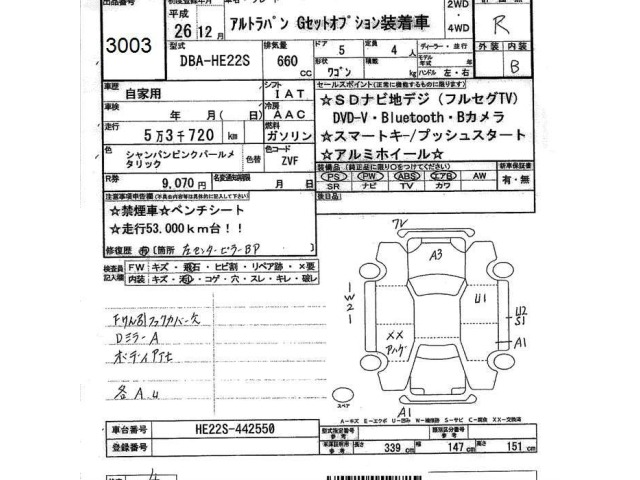 出品番号
3003
初度登録年月
平成 26年 12月
アルトラパン Gセットオプション装着車
2WD・4WD
R
型式
DBA-HE22S
排気量
660 cc
ドア 5
定員 4 人
形状 ワゴン
積載 kg
ディーラー・並行
モデル年式 年
ハンドル 左・右
外装 内装
B
車歴
自家用
シフト
IAT
車検
年 月(日)
冷房
AAC
走行
5万3千720 km
燃料
ガソリン
色
シャンパンピンクパールメタリック
色替
色コード
ZVF
R券
9,070 円
名変通知期限
月 日
セールスポイント(正常に機能するものに限ります)
☆SDナビ地デジ(フルセグTV)
DVD-V・Bluetooth・Bカメラ
☆スマートキー/プッシュスタート
☆アルミホイール☆
装備品(純正品に限り○をつけてください)
PS PW ABS エアB AW
SR ナビ TV カワ
新車保証書
有・無
後日品
注意事項申告欄(不具合等は具体的に記入して下さい)
☆禁煙車☆ベンチシート
☆走行53.000km台!!
修復歴 有 [箇所 左センターピラーBP
検査員記入欄
FW キズ・飛石・ヒビ割・リペア跡・×要
内装 キズ・汚れ・コゲ・穴・スレ・キレ・破レ
Dミラー A
各A.U
7V
A3
1
W
2
1
U1
U2
S1
A1
XX
A1
スペア
A-キズ E-エクボ U-凹み W-補修跡 S-サビ C-腐食 XX-交換済
車台番号
HE22S-442550
登録番号
型式指定番号 参考
類別区分番号 参考
車庫証明用 参考
長さ 339 cm
幅 147 cm
高さ 151 cm